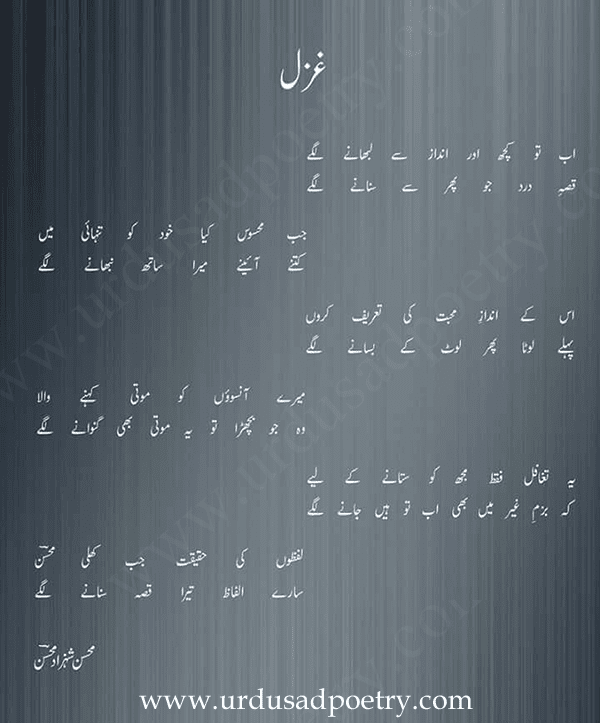 غزل
اب تو کچھ اور انداز سے لبھانے لگے
قصہِ درد جو پھر سے سنانے لگے
جب محسوس کیا خود کو تنہائی میں
کتنے آئینے میرا ساتھ نبھانے لگے
اس کے اندازِ محبت کی تعریف کروں
پہلے لوٹا پھر لوٹ کے بسانے لگے
میرے آنسوؤں کو موتی کہنے والا
وہ جو بچھڑا تو یہ موتی بھی گنوانے لگے
یہ تغافل فقط مجھ کو ستانے کے لیے
کہ بزمِ غیر میں بھی اب تو ہیں جانے لگے
لفظوں کی حقیقت جب کھلی محسنؔ
سارے الفاظ تیرا قصہ سنانے لگے
محسن شہزاد محسنؔ
www.urdusadpoetry.com